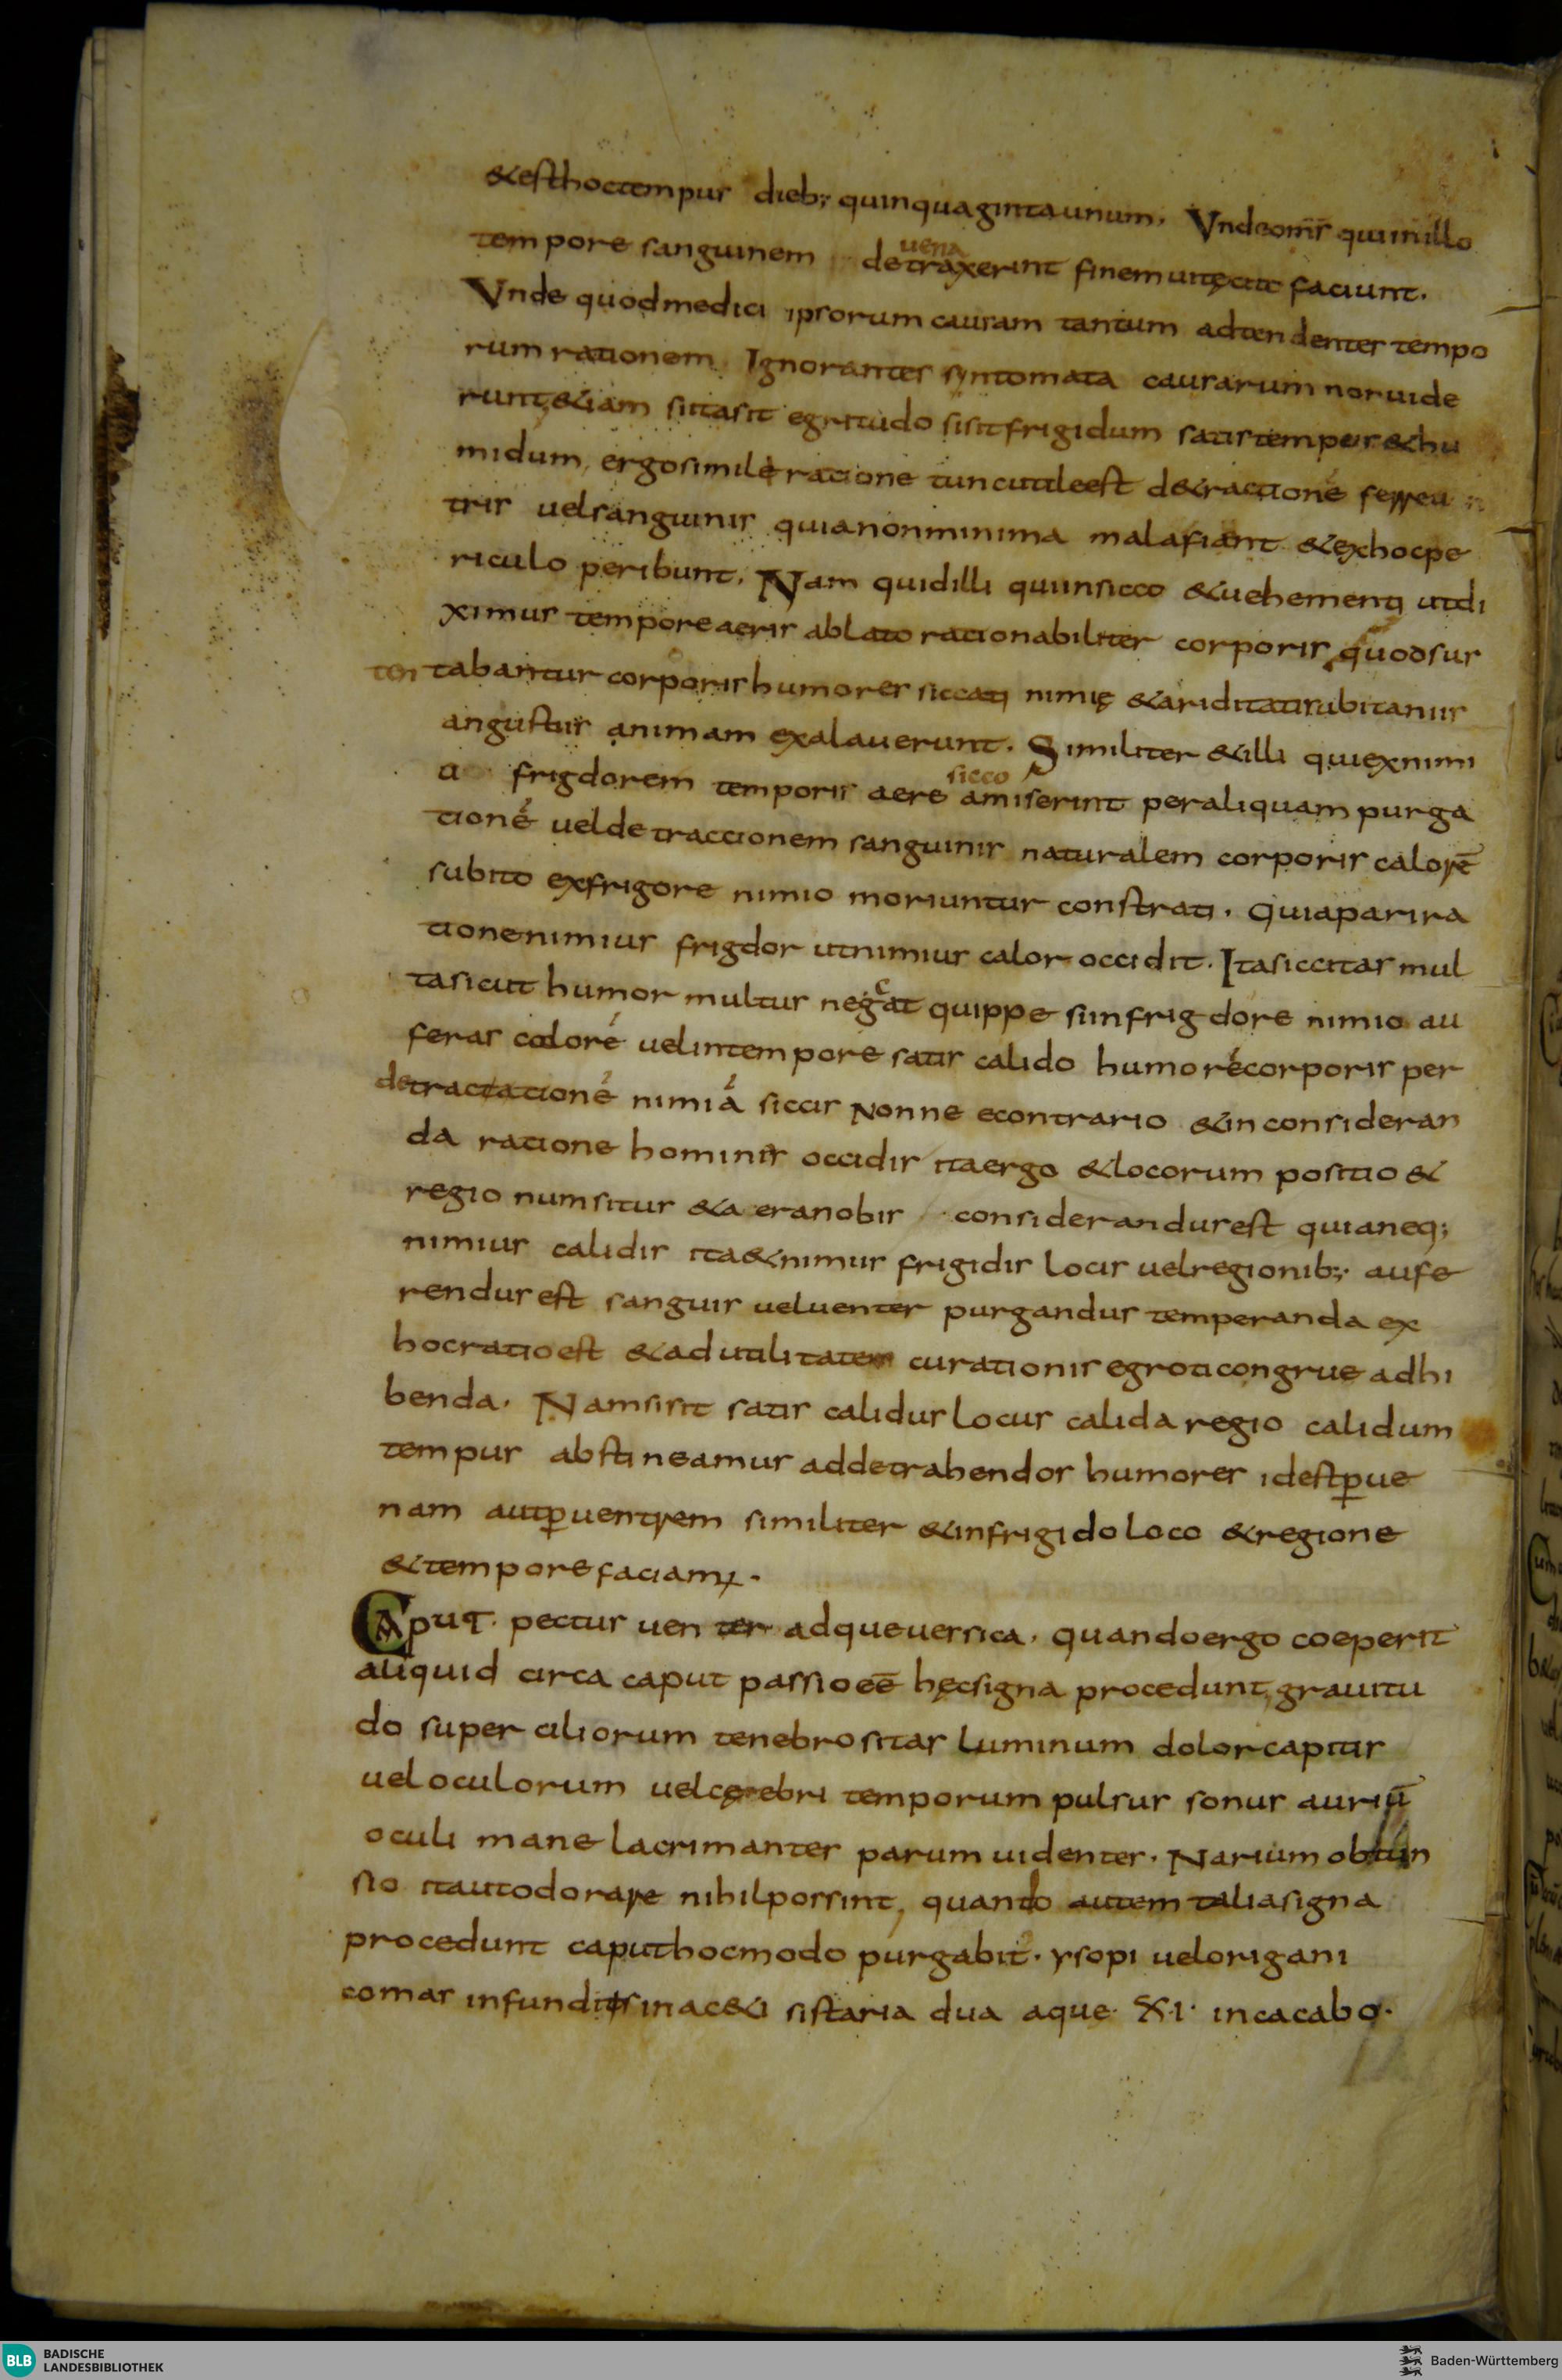 &est hoc tempus dieb; quinquaginta unum. Unde om̄s qui in illo
tempore sanguinem detraxerint finem uitę cit faciunt.
uena
Unde quod medici ipsorum causam tantum adtendentes tempo
rum rationem Ignorantes syntomata causarum non uide
runt, &iam si ita sit egritudo si sit frigidum satis tempus &hu
midum, ergo simile racione tunc utile est d&ractione
tris uel sanguinis quia non minima mala fiant &ex hoc pe
riculo peribunt. Nam quid illi qui in sicco &uehementi ut di
ximus tempore aeris ablato racionabiliter corporis, quod sus
ten tabantur corporis humores siccati nimię &ariditatis subitaniis
angustiis animam exalauerunt. Similiter &illi qui ex nimi
a frigdorem temporis aere amiserint per aliquam purga
sicco
tioné uel detraccionem sanguinis naturalem corporis calorē
subito ex frigore nimio moriuntur constrati. Quia pari ra
tione nimius frigdor ut nimius calor occidit. Ita siccitas mul
ta sicut humor multus negat quippe si in frigdore nimio au
c
feras caloré uel in tempore satis calido humoré corporis per
detractacioné nimiá siccis Nonne econtrario &inconsideran
da ratione hominis occidis ita ergo &locorum positio &
regionum situs &a eranobis considerandus est quia neq;
nimius calidis ita &nimius frigidis locis uel regionib; aufe
rendus est sanguis uel uenter purgandus temperanda ex
hoc ratio est &ad utilitatem curationis egroti congrue adhi
benda. Nam si sit satis calidus locus calida regio calidum
tempus abstineamus ad detrahendos humores id est ꝑ ue
nam aut ꝑ uentrem similiter &in frigido loco &regione
&tempore faciam;.
Caput. pectus uenter adque uersica. quando ergo coeperit
aliquid circa caput passio eē hęc signa procedunt, grauitu
do superciliorum tenebrositas luminum dolor capitis
uel oculorum uel cęrebri temporum pulsus sonus auriū
oculi mane lacrimantes parum uidentes. Narium obtun
sio ita ut odorare nihil possint, quando autem talia signa
procedunt caput hoc modo purgabis. ysopi uel origani
comas infundis in ac&i sistaria dua aque. XI. in cacabo.
BLB BADISCHE
LANDESBIBLIOTHEK
Baden-Württemberg